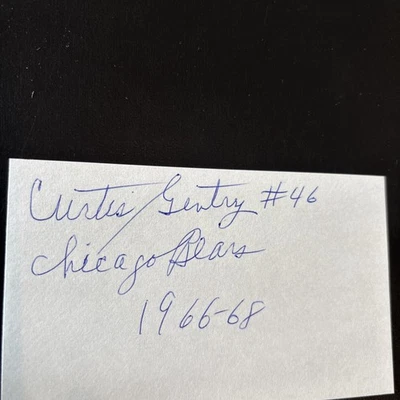 Curtis Gentry #46
Chicago Bears
1966-68